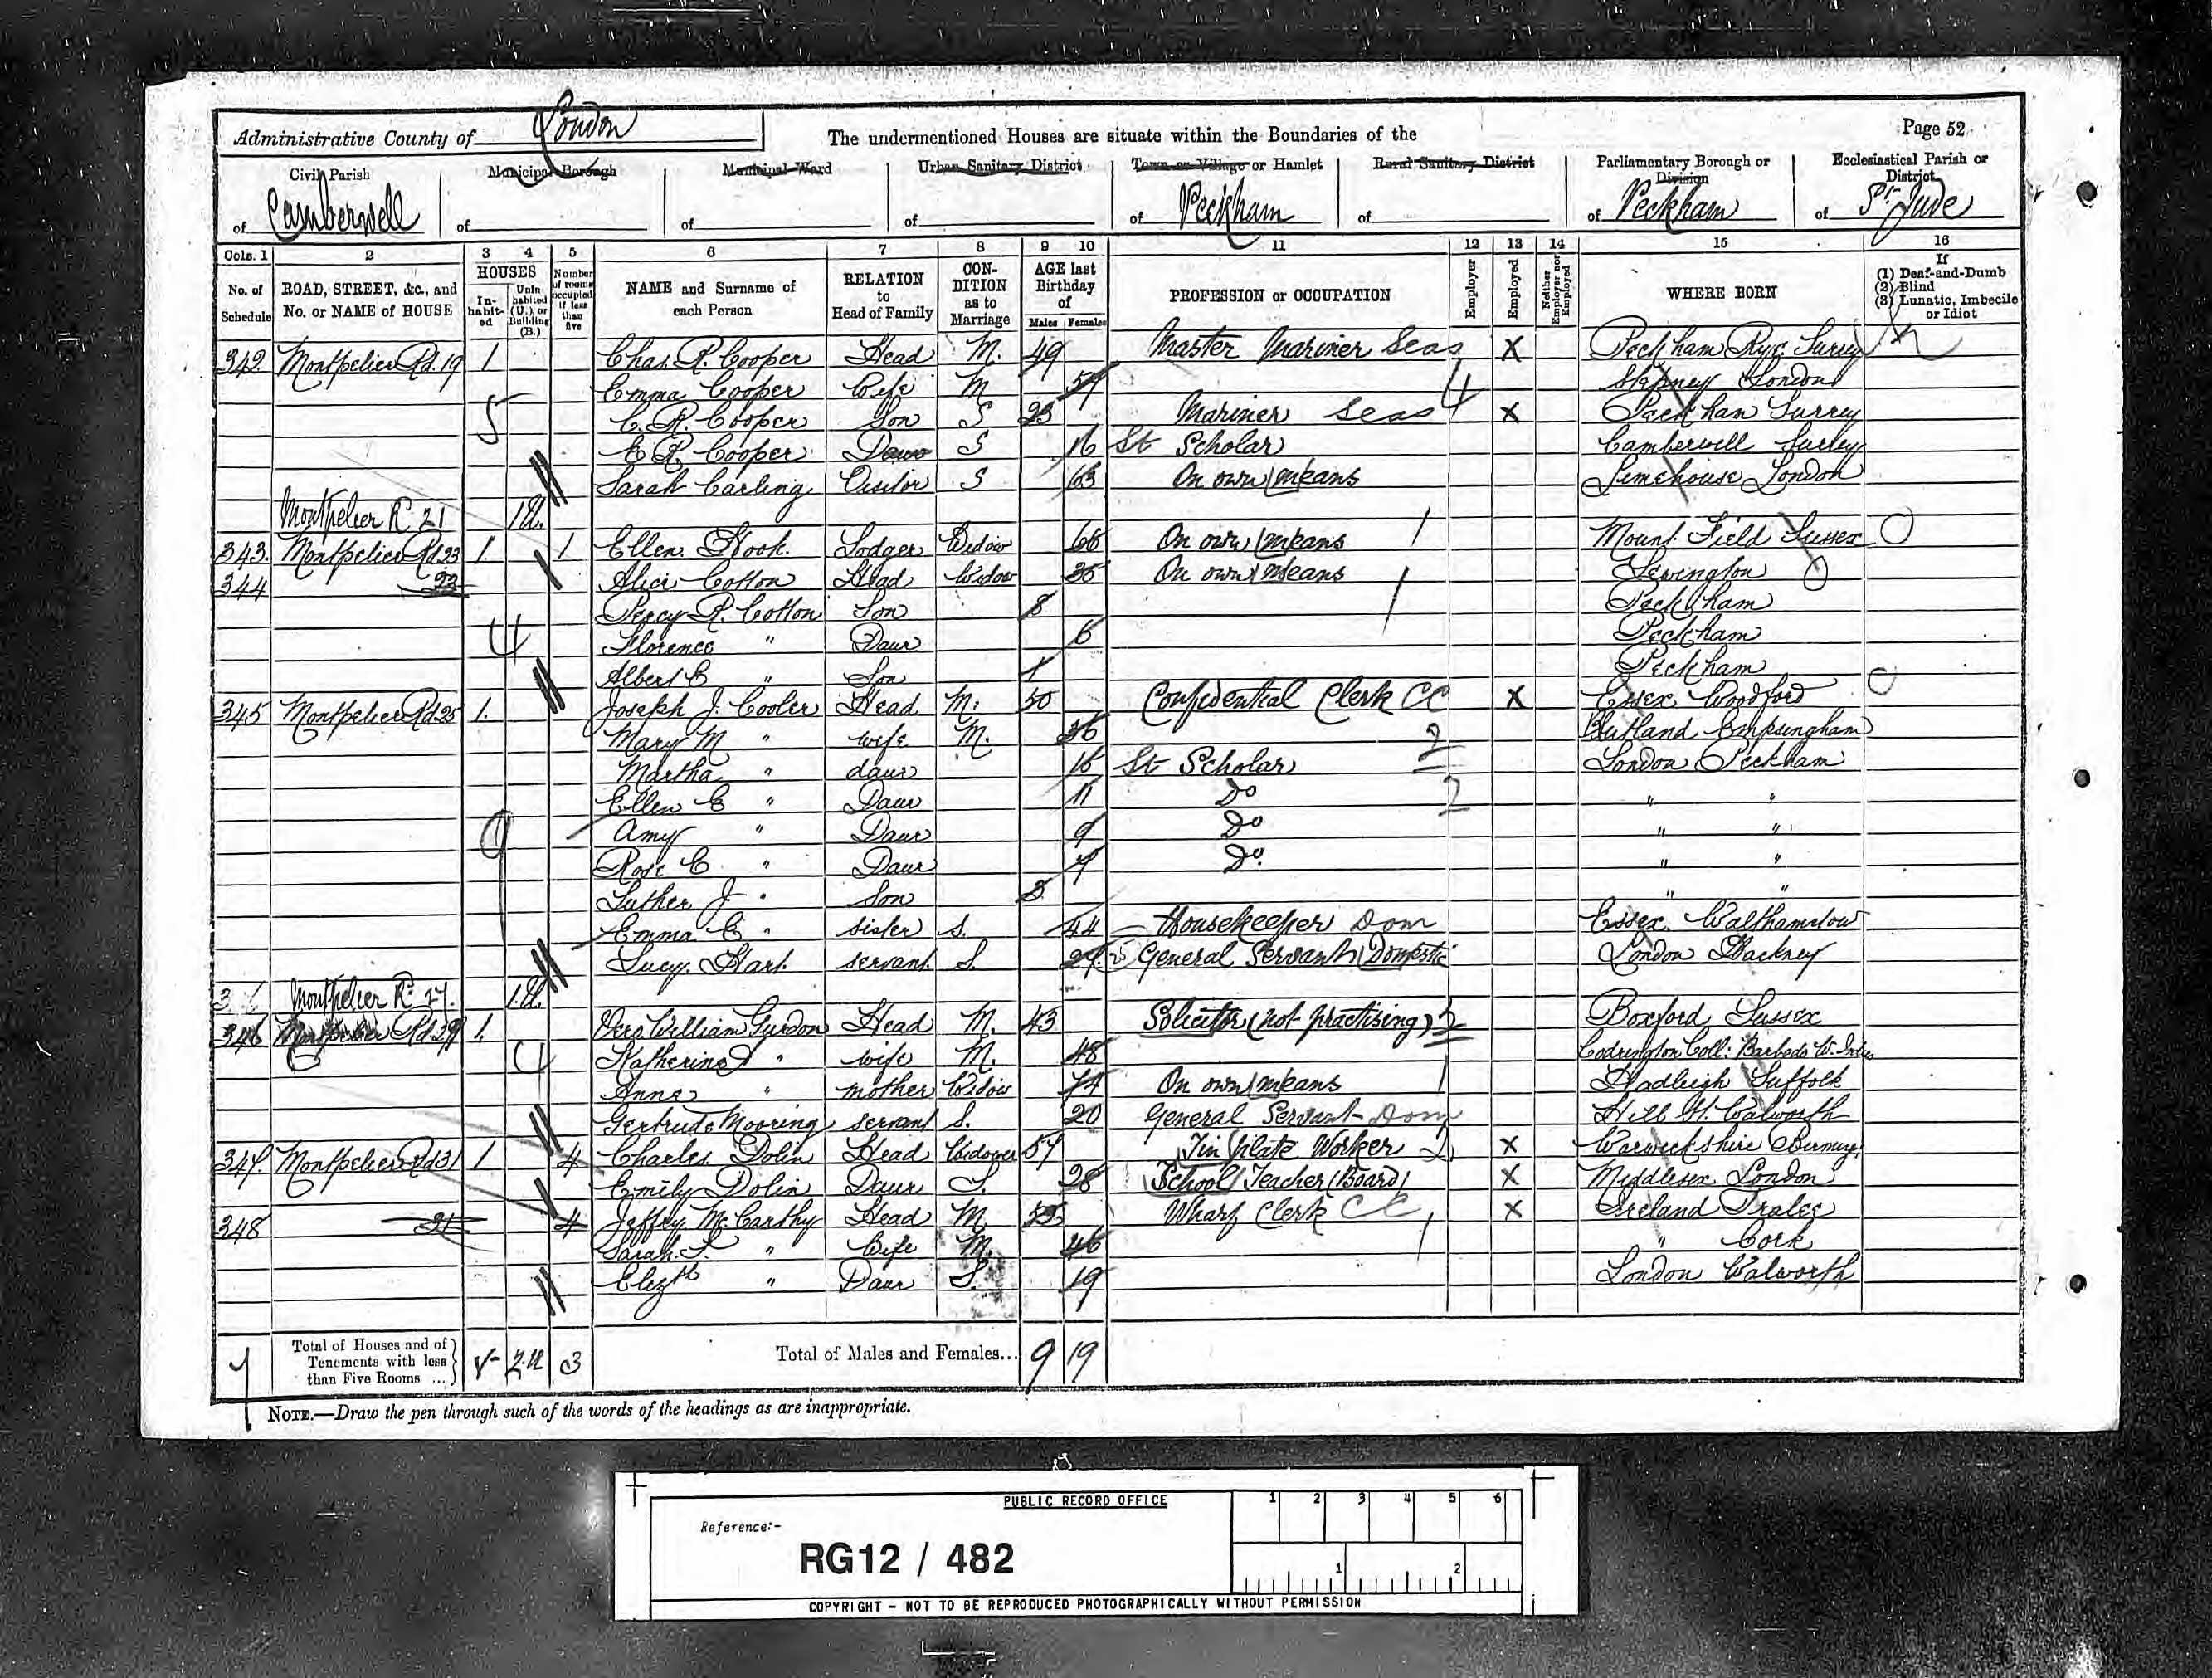 Administrative County of London
The undermentioned Houses are situate within the Boundaries of the
Page 52
Civil Parish of Camberwell
Municipal Borough of
Municipal Ward of
Urban Sanitary District of
Town or Village or Hamlet of Peckham
Rural Sanitary District of
Parliamentary Borough or Division of Peckham
Ecclesiastical Parish or District of St Jude
Cols. 1 2 3 4 5 6 7 8 9 10 11 12 13 14 15 16
No. of Schedule
ROAD, STREET, &c., and No. or NAME of HOUSE
HOUSES
Inhabited
Uninhabited (U.), or Building (B.)
Number of rooms occupied if less than five
NAME and Surname of each Person
RELATION to Head of Family
CONDITION as to Marriage
AGE last Birthday of
Males Females
PROFESSION or OCCUPATION
Employer
Employed
Neither Employer nor Employed
WHERE BORN
If
(1) Deaf-and-Dumb
(2) Blind
(3) Lunatic, Imbecile or Idiot
342 Montpelier Rd. 19 1 Chas. R. Cooper Head M. 49 Master Mariner Seas X Peckham Rye Surrey
Emma Cooper Wife M Stepney London
5 C. R. Cooper Son S 23 Mariner Seas X Peckham Surrey
E R. Cooper Daur S 16 St Scholar Camberwell Surrey
Sarah Carling Visitor S 63 On own means Limehouse London
Montpelier Rd 21 1 U.
343. Montpelier Rd 23 1. 1 Ellen Hook. Lodger Widow 66 On own means Mount Field Sussex
344 23 Alice Cotton Head Widow 35 On own means
Percy R. Cotton Son 8 Peckham
4 Florence " Daur 6 Peckham
Albert E " Son 1 Peckham
345 Montpelier Rd 25 1. Joseph J. Cooler Head M. 50 Confidential Clerk CC X Essex Woodford
Mary M " wife M. 36 Rutland Empsingham
Martha " daur St Scholar London Peckham
Ellen E " Daur 11 Do " "
9 Amy " Daur 9 Do " "
Rose E " Daur 7 Do. " "
Luther J " Son 3 " "
Emma E " sister S. 44 Housekeeper Dom Essex. Walthamstow
Lucy. Hart. servant S. General Servant Domestic London Hackney
Montpelier Rd 27. 1. U.
346 Montpelier Rd. 29 1. William Gurdon Head M. 43 Solicitor (not practising) Boxford Sussex
4 Katherine " wife M. 48 Codrington Coll: Barbados W. Indies
Anna " mother Widow 74 On own means Hadleigh Suffolk
Gertrude Mooring servant S. 20 General Servant Dom Hill St. Walworth
347. Montpelier Rd 31 1 4 Charles Dolin Head Widower 57 Tin Plate Worker X Warwickshire Birming.
Emily Dolin Daur S. 28 School Teacher (Board) X Middlesex London
348 31 4 Jeffry McCarthy Head M Wharf Clerk CC X Ireland Tralee
Sarah. " Wife M. 46 " Cork
Elizth " Daur S. 19 London Walworth
Total of Houses and of Tenements with less than Five Rooms ... 2 U 3
Total of Males and Females... 9 19
NOTE.—Draw the pen through such of the words of the headings as are inappropriate.
PUBLIC RECORD OFFICE
1 2 3 4 5 6
Reference:-
RG12 / 482
1 2
COPYRIGHT - NOT TO BE REPRODUCED PHOTOGRAPHICALLY WITHOUT PERMISSION